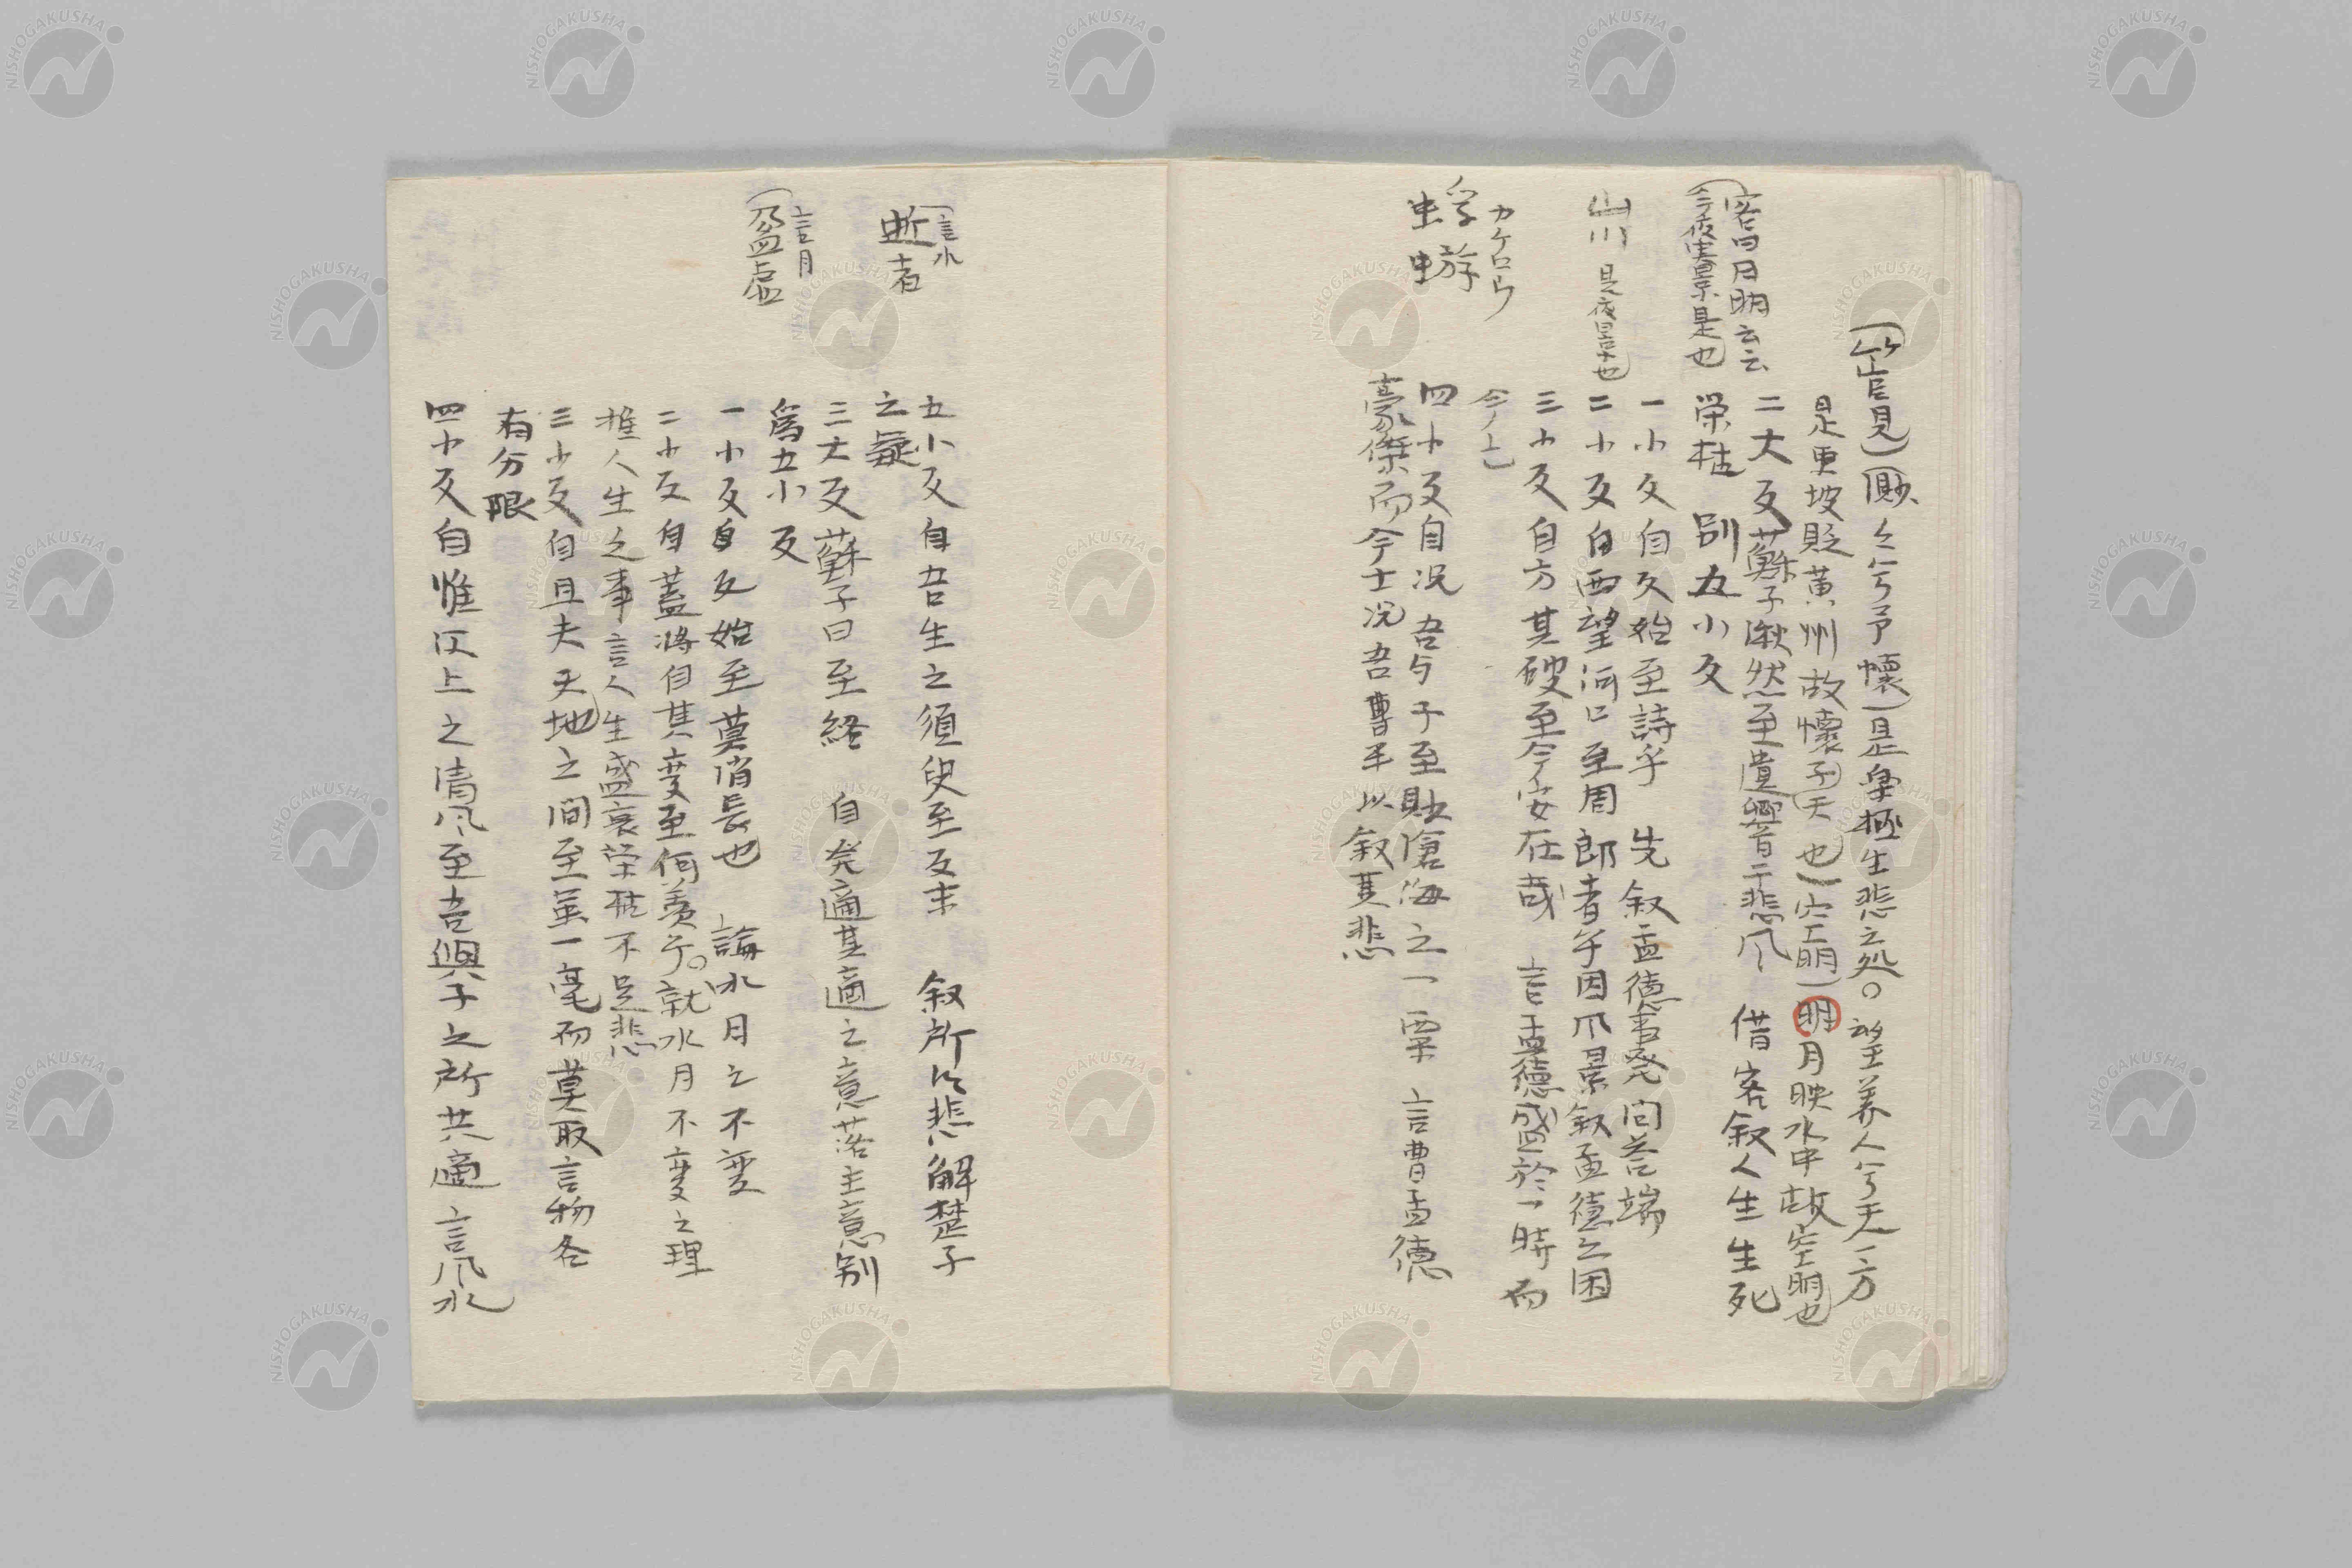 (管見)(渺々兮予懐)是楽極生悲之処。望美人兮天一方
是更坡貶黄州故懐(子)(天也)(空明)明月映水中故空明也
客曰月明云云
今夜実景是也
二大段蘇子愀然至遺響音于悲風 借客叙人生生死
栄枯 別五小段
一小段自段始至詩乎 先叙孟徳事発問答端
山川 是夜景也
二小段自西望河口至周郎者乎因風景叙孟徳之困
三小段自方其破至今安在哉 言孟徳盛於一時而
今ノ亡
カケロウ
蜉蝣
四小段自况吾与子至眇滄海之一粟 言曹孟徳
豪傑而今士况吾曹乎以叙其悲
言水
逝者
五小段自吾生之須臾至段末 叙所以悲解楚子
之疑
三大段蘇子曰至終 自発適其適之意落主意別
言月
盈虚
為五小段
一小段自段始至莫消長也 論水月之不変
二小段自蓋将自其変至何羨乎。就水月不変之理
推人生之事言人生盛衰栄枯不足悲
三小段自且夫天地之間至虽一毫而莫取言物各
有分限
四小段自惟江上之清風至吾與子之所共適 言風水